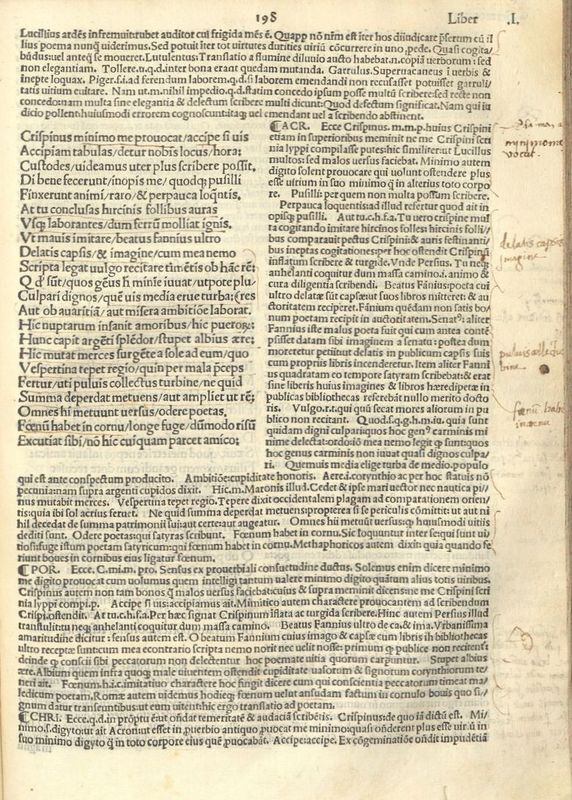 198 Liber .I.
Lucillius ardēs infremuit:rubet auditor cui frigida mēs ē. Quapp nō nr̄m est iter hos diiudicare p̄sertim cū il
lius poema nunq̄ uiderimus. Sed potuit iter tot uirtutes durities uiriū cōcurrere in uno,pede. Quasi cogita
būdus:uel anteq̄ se moueret. Lutulentus Translatio a flumine diluuio aucto habebat.n.copiā uerborum : sed
non elegantiam. Tollere.u.q.d.inter bona erant quedam mutanda. Garrulus. Superuacaneus i uerbis &
inepte loquax. Piger.s.i.ad ferendum laborem.q.d.si laborem emendandi non recusasset potuisset garruli/
tatis uitium euitare. Nam ut.m.nihil impedio.q.d.statim concedo ipsum posse multū scribere:sed recte non
concedo:nam multa sine elegantia & delectum scribere multi dicunt: Quod defectum significat. Nam qui iu
dicio pollent:huiusmodi errorem cognoscunt:itaq̄ uel emendant uel a scribendo abstinent.
Crispinus minimo me prouocat/accipe si uis
Accipiam tabulas/detur nobīs locus/hora:
Custodes/uideamus uter plus scribere possit.
Di bene fecerunt/inopis me/ quodq; pusilli
Finxerunt animi/raro/& perpauca loquētis.
At tu conclusas hircinis follibus auras
Vsq; laborantes/dum ferrū molliat ignis.
Vt mauis imitare/beatus Fannius ultro
Delatis capsis/& imagine/cum mea nemo
Scripta legat uulgo recitare timētis ob hāc rē:
Q d' sūt/quos genus h minīe iuuat/utpote plu/
Culpari dignos/quē uis media erue turba: (res
Aut ob auaritiā/aut misera ambitiōe laborat.
Hic nuptarum insanit amoribus/hic pueroR:
Hunc capit argēti splēdor/stupet albius ære:
Hic mutat merces surgēte a sole ad eum/quo
Vespertina tepet regio/quin per mala p̄ceps
Fertur/uti puluis collectus turbine/ne quid
Summa deperdat metuens/aut ampliet ut rē:
Omnes hi metuunt uersus/odere poetas.
Fœnū habet in cornu/longe fuge/dūmodo risū
Excutiat sibi/nō hic cuiquam parcet amico:
¶ACR. Ecce Crispinus. m.m.p.huius Crispini
etiam in superioribus meminit ne me Crispini scri
nia lyppi compilasse putes:hic similiter ut Lucilius
multos: sed malos uersus faciebat. Minimo autem
digito solent prouocare qui uolunt ostendere plus
esse uirium in suo minimo q̄ in alterius toto corpo
re. Pusilli: per quem non multa possum scribere.
Perpauca loquentis:ad illud refertur quod ait in
opis:q̄ pusilli. Aut tu.c.h.f.a. Tu uero crispine mul
ta cogitando imitare hircinos folles: hircinis folli/
bus comparauit pectus Crispini:& auris festinanti/
bus ineptas cogitationes: per hoc ostendit Crispinū
inflatum scribere & turgide. Vnde Persius. Tu neq̄
anhelanti coquitur dum massa camino.i. animo &
cura diligentia scribendi. Beatus Fānius:poeta cui
ultro delatæ sūt capsæ:ut suos libros mitteret: & au
ctoritatem reciperet. Fānium quēdam non satis bo/
num poetam recipit in auctoritatem .Senat: aliter
Fannius iste malus poeta fuit qui cum antea contē
psisset datam sibi imaginem a senatu: postea dum
moretetur petiitut delatis in publicum capsis suis
cum propriis libris incenderetur. Item aliter Fanni
us quadratam eo tempore satyram scribebat:& erat
sine liberis huius imagines & libros hærediperæ in
publicas bibliothecas referebāt nullo merito docto
ris. Vulgo.r.t.qui quū fecat mores aliorum in pu
blico non recitant. Quod.s.q.g.h.m.iu. quia sunt
quidam digni culpari:quos hoc gen carminis mi
nime delectat:ordo:iō mea nemo legit q̄ sunt:quos
hoc genus carminis non iuuat quasi dignos culpa/
ri. Quemuis media elige turba de medio.populo
qui est ante conspectum producito. Ambitiōe:cupiditate honoris. Aere:i.corynthio æs per hoc statuis nō
pecuniam:nam supra argenti cupidos dixit. Hic.m. Maronis illud. Cedet & ipse mari uector nec nautica pi/
nus mutabit merces. Vespertina tepet regio. Tepere dixit occidentalem plagam ad comparationem orien/
tis:quia ibi sol acrius feruet. Ne quid summa deperdat metuens:propterea si se periculis cōmittit: ut aut ni
hil decedat de summa patrimonii sui:aut certe:aut augeatur. Omnes hii metuūt uersus:q̄ huiusmodi uitiis
dediti sunt. Odere poetas:qui satyras scribunt. Fœnum habet in cornu. Sic loquuntur inter se:qui sunt uī
tiosi:fuge istum poetam satyricum:qui fœnum habet in cornu. Metaphoricos autem dixit: quia quando fe
riunt boues in cornibus eius ligatur fœnum.
¶POR. Ecce. C.mi.m. pro. Sensus ex prouerbiali consuetudine ductus. Solemus enim dicere minimo
me digito prouocat cum uolumus quem intelligi tantum ualere minimo digito quātum alius totis uiribus.
Crispinus autem non tam bonos q̄ malos uersus faciebat:cuius & supra meminit dicens:ne me Crispini scri
nia lyppi compi.p. Accipe si uis:accipiamus ait. Mimitico autem charactere prouocantem ad scribendum
Crispi.ostendit. At tu.c.hi.f.a. Per hæc signat Crispinum īflata ac turgida scribere. Hinc autem Persius illud
transtulit:tu neq; anhelanti coquitur dum massa camino. Beatus Fannius ultro de.ca.& ima. Vrbanissima
amaritudīne dicitur: sensus autem est. O beatum Fannium cuius imago & capsæ cum libris in bibliothecas
ultro receptæ sunt:cum mea econtrario scripta nemo norit nec uelit nosse: primum q̄ publice non recitent:
deinde q̄ conscii sibi peccatorum non delectentur hoc poemate uitia quorum carpuntur. Super albius
ære. Albium quem infra quoq; male uiuentem ostendit cupiditate uasorum & signorum corynthiorum te/
neri ait. Fœnum.h.i.c.imitatiuo charactere hoc fingit dicere cum qui conscientia peccatorum timeat ma/
ledicum poetam. Romæ autem uidemus hodieq; fœnum uelut ansulam factum in cornulo bouis quo si/
gnum datur transeuntibus:ut eum uitent:hic ergo translatio ad poetam.
¶CHRI. Ecce.q.d.in prōptu ē:ut ōndat temeritatē & audaciā scribētis. Crispinus:de quo iā dictū est. Mi/
nimo.s.digyto:ut ait Acron:ut esset in prouerbio antiquo,puocat me minimo:quasi ōnderent plus esse uirū ī
suo minimo digyto q̄ in toto corpore eius quē puocabāt. Accipe:accipe. Ex cōgeminatiōe ōndit impudētiā
delatis capsis
imagine